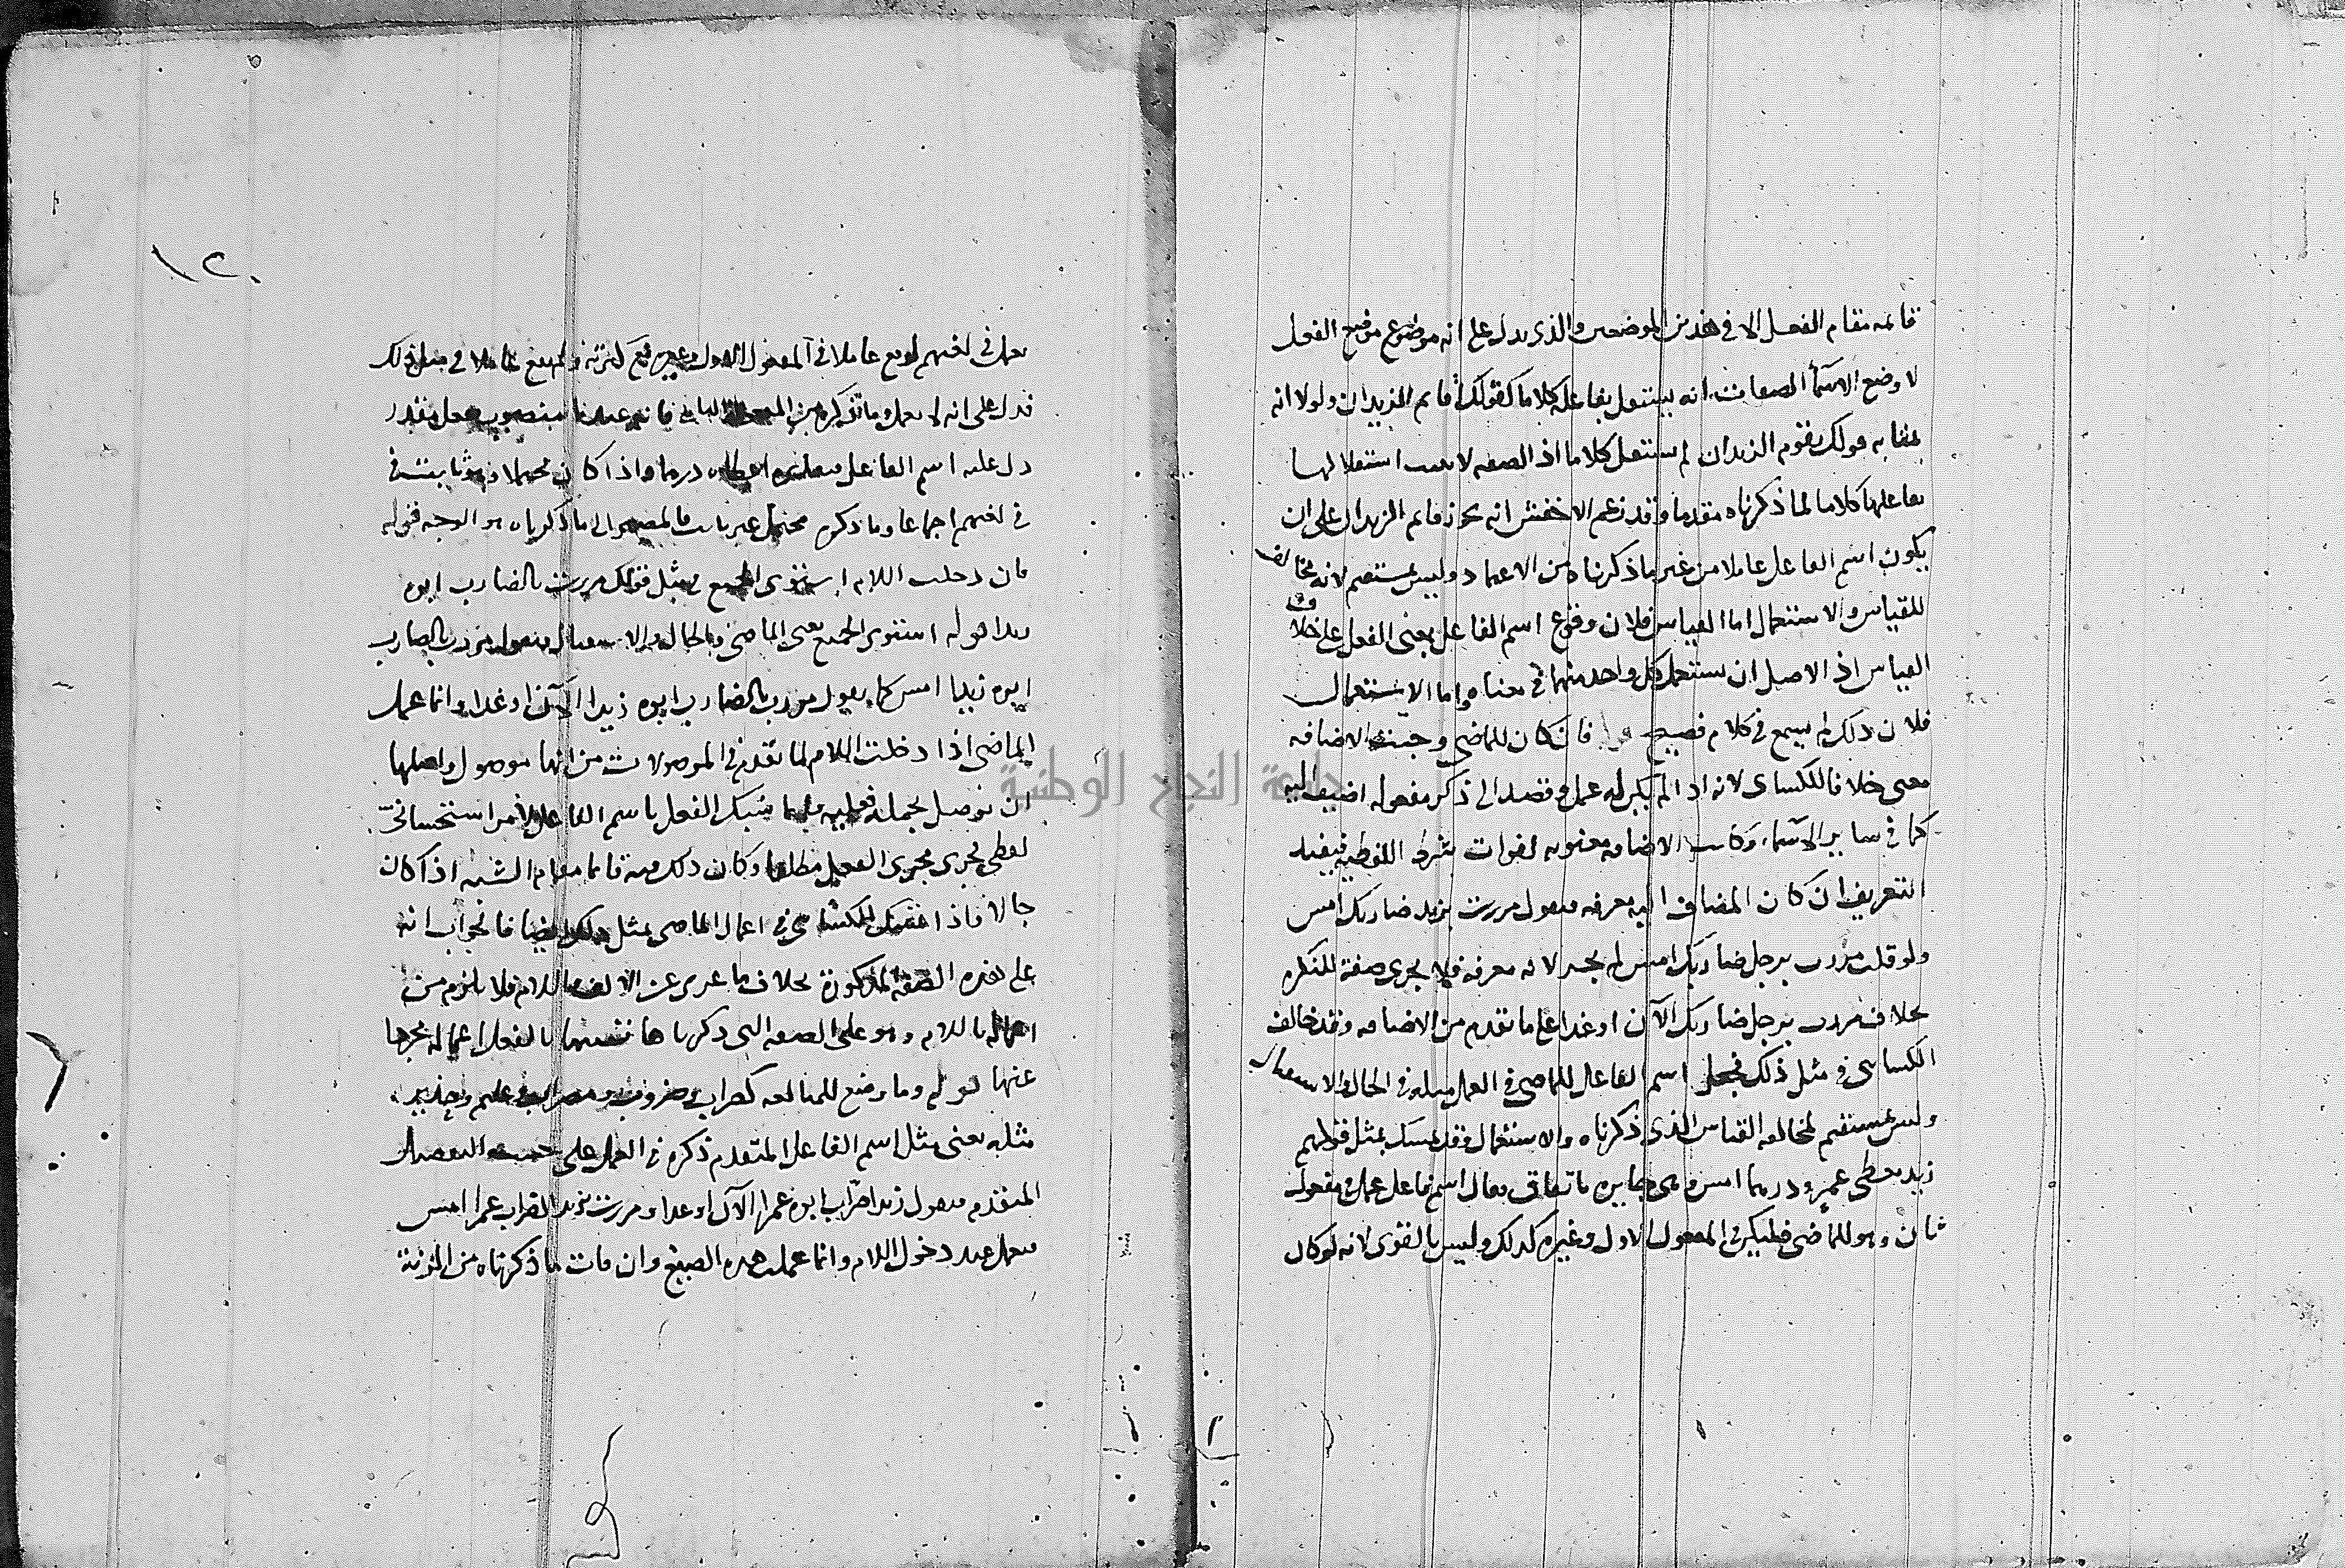 قائمه مقام الفعل الا في هذين الموضعين والذي يدل على انه موضوع موضع الفعل
لا وضع الاسمآ الصفات انه يستقل بفاعله كلاما كقولك اقايم الزيدان ولولا انه
بمثابه قولك يقوم الزيدان لم يستقل كلاما اذ الصفه لا استقلالها
بفاعلها كلاما لما ذكرناه مقدما وقد زعم الاخفش انه يجوز قايم الزيدان على ان
يكون اسم الفاعل عاملا من غير ما ذكرناه من الاعتماد وليس بمستقيم لانه مخالف
للقياس والاستعمال اما القياس فلان وقوع اسم الفاعل بمعنى الفعل على خلاف
القياس اذ الاصل ان يستعمل كل واحد منهما في معناه واما الاستعمال
فلان ذلك لم يسمع في كلام فصيح فان كان للماضي وجبت الاضافه
معنى خلافا للكسائى لانه اذ الم يكن له عمل وقصد الى ذكر مفعوله اضيف اليه
كما في ساير الاسماء وكانت الاضافه معنويه لفوات شرط اللفظيه فيفيد
التعريف ان كان المضاف اليه معرفه فتقول مررت بزيد ضاربك امس
ولو قلت مررت برجل ضاربك امس لم يجز لانه معرفه فلا يجرى صفة للنكره
بخلاف مررت برجل ضاربك الآن او غدا على ما تقدم من الاضافه وقد خالف
الكسائى في مثل ذلك فجعل اسم الفاعل للماضى في العمل مثله في الحال والاستقبال
وليس بمستقيم لمخالفه القياس الذى ذكرناه والاستعمال وقد تمسك بمثل قولهم
زيد معطى عمرو درهما امس وهى جايزه باتفاق فقال اسم فاعل عمل في مفعول
ثان وهو للماضى فليكن في المفعول الاول وغيره كذلك وليس بالقوى لانه لو كان
١٢٠
يعمل في لغتهم لوقع عاملا في المفعول الاول وغيره مع كثرته ولم يقع عاملا في مثل ذلك
فدل على انه لا يعمل وما تذكره من الثانى فانه عندنا منصوب بفعل مقدر
دل عليه اسم الفاعل اعطاه درهما واذا كان محتملا وهو ثابت في
في لغتهم اجماعا وما ذكره محتمل غير ثابت فالمصير الى ما ذكرناه هو الوجه قوله
فان دخلت اللام استوى الجميع في مثل قولك مررت بالضارب ابوه
هذا قوله استوى الجميع يعنى الماضى والحال والاستقبال فتقول مررت بالضارب
ابوه زيدا امس كما يقول مررت بالضارب ابوه زيدا الآن او غدا وانما عمل
الماضى اذا دخلت اللام لما تقدم في الموصولات من انها موصول واصلها
ان توصل بجملة فعليه فلما سبك الفعل باسم الفاعل لامر استحسانى
لفظى جرى مجرى الفعل مطلقا وكان ذلك فيه قائما مقام الشبه اذ اكان
حالا فاذا تمسك الكسائى في اعمال الماضى بمثل ذلك ايضا فالجواب انه
على هذه الصفه المذكورة بخلاف ما عرى عن الالف واللام فلا يلزم من
اعماله باللام وهو على الصفه التى ذكرناها تشبيها بالفعل اعماله مجردا
عنها قوله وما وضع للمبالغه كضراب وضروب ومضراب وعليم وحذير
مثله يعنى مثل اسم الفاعل المتقدم ذكره في العمل على التفصيل
المتقدم فتقول زيد اضراب ابوه عمرا الآن او غدا ومررت بزيد الضراب عمرا امس
فتعمل عند دخول اللام وانما عملت هذه الصيغ وان فات ما ذكرناه من الزنة
جامعة النجاح الوطنية